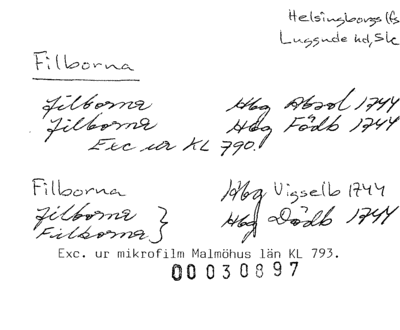 Helsingborgs lfs
Luggude hd, Sk
Filborna
Filborna Hbg Absol 1744
Filborna Hbg Födb 1744
Exc ur KL 790.
Filborna Hbg Vigselb 1744
Filborna } Hbg Dödb 1744
Filborna }
Exc. ur mikrofilm Malmöhus län KL 793.
00030897